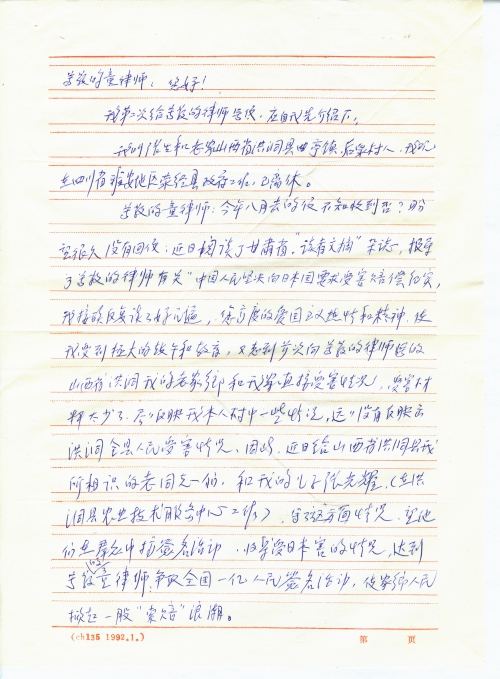 尊敬的童律师：您好！
我第二次给尊敬的律师写信，应自我先介绍下，
我叫张生和老家山西省洪洞县曲亭镇后采村人，我现
在四川省雅安地区荥经县政府工作，已离休。
尊敬的童律师：今年八月去的信不知收到否？盼
望很久没有回信，近日阅读了甘肃省“读者文摘”杂志，报导
了尊敬的律师有关“中国人民坚决向日本国要求受害赔偿的实，
我接连反复读了好几遍，您高度的爱国主义热情和精神，使
我受到极大的教育，又想到首次向尊敬的律师写的
山西省洪洞我的老家乡和我家直接受害情况，受害材
料太少了，只反映我本人村中一些情况，远远没有反映出
洪洞全县人民受害情况，因此，近日给山西省洪洞县我
所相识的老同志一的，和我的儿子张光耀，（在洪
洞县农业技术服务中心工作），写了这方面情况，望他
们在群众中搞签名活动，归导受日本害的情况，达到
尊敬的童律师，争取全国一亿人民签名活动，使家乡人民
掀起一股“索赔”浪潮。
(ch135 1992.1.) 第 页